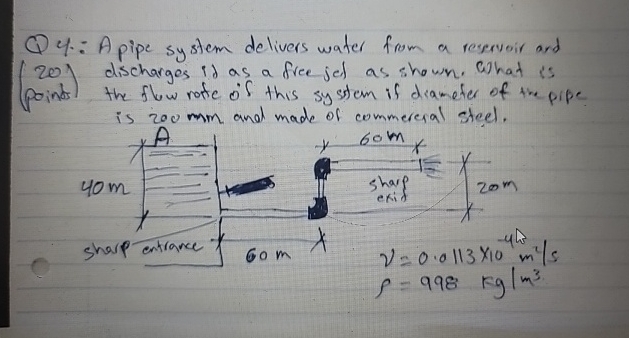 Q4: A pipe system delivers water from a reservoir and
(20 points) discharges it as a free jet as shown. What is
the flow rate of this system if diameter of the pipe
is 200 mm and made of commercial steel.
A
60m
40m
sharp
exit
20m
sharp entrance
60 m
ν = 0.0113 X10⁻⁴ m²/s
ρ = 998 kg/m³